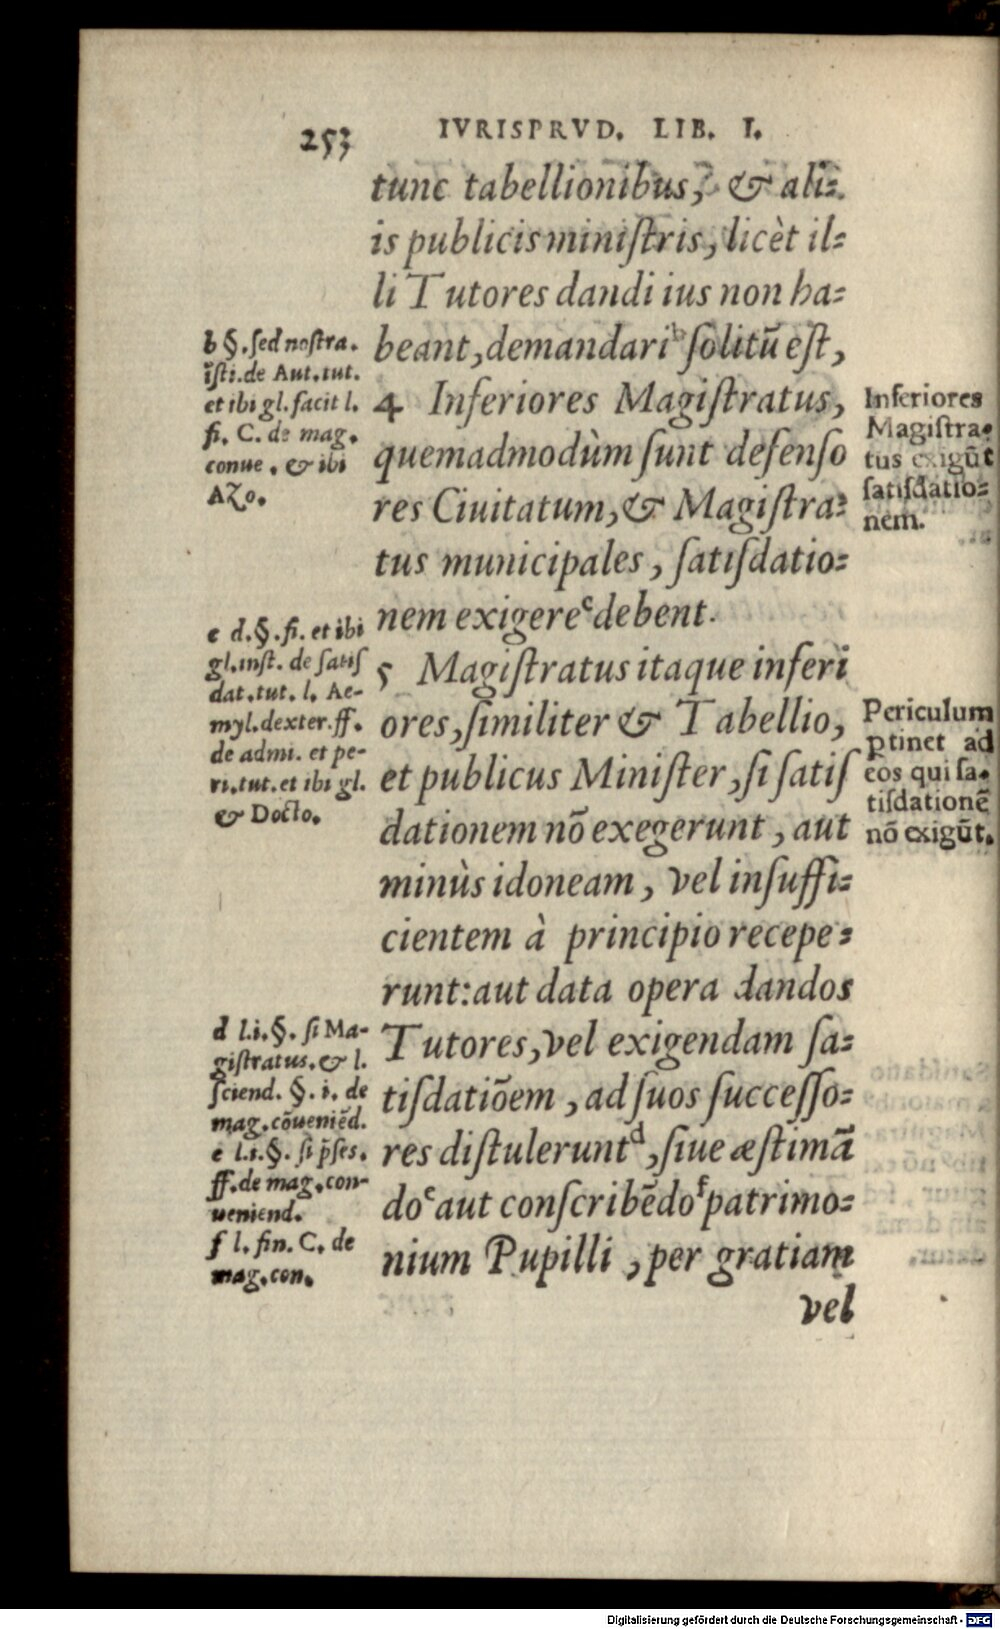 253 IVRISPRVD. LIB. I.
tunc tabellionibus, & ali⸗
is publicis miniſtris, licèt il⸗
li Tutores dandi ius non ha⸗
beant, demandari b ſolitū eſt,
4 Inferiores Magiſtratus,
quemadmodùm ſunt defenſo
res Ciuitatum, & Magiſtra⸗
tus municipales, ſatiſdatio⸗
nem exigere c debent.
5 Magiſtratus itaque inferi
ores, ſimiliter & Tabellio,
et publicus Miniſter, ſi ſatiſ
dationem nō exegerunt, aut
minùs idoneam, vel inſuffi⸗
cientem à principio recepe⸗
runt: aut data opera dandos
Tutores, vel exigendam ſa⸗
tiſdatiōem, ad ſuos ſucceſſo⸗
res diſtulerunt d, ſiue æſtimā
do e aut conſcribēdo f patrimo⸗
nium Pupilli, per gratiam
vel
b §. ſed noſtra.
īſti. de Aut. tut.
et ibi gl. facit l.
fi. C. de mag.
conue. & ibi
Azo.
c d. §. fi. et ibi
gl. inſt. de ſatiſ
dat. tut. l. Ae-
myl. dexter. ff.
de admi. et pe-
ri. tut. et ibi gl.
& Docto.
d l.i. §. ſi Ma-
giſtratus. & l.
ſciend. §. i. de
mag. cōueniēd.
e l.i. §. ſi p̄ſes.
ff. de mag. con-
ueniend.
f l. fin. C. de
mag. con.
Inferiores
Magiſtra⸗
tus exigūt
ſatiſdatio⸗
nem.
Periculum
ꝑtinet ad
eos qui ſa⸗
tiſdationē
nō exigūt.
Digitalisierung gefördert durch die Deutsche Forschungsgemeinschaft - DFG